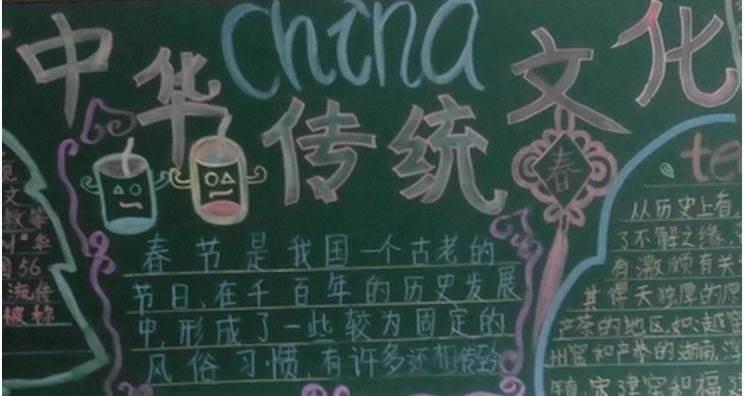 china
中华
传统
文化
春
文
56
流传
被称
春节是我国一个古老的
节日,在千百年的历史发展
中,形成了一些较为固定的
风俗习惯,有许多还相传至今
te
从历史上看,
了不解之缘,
有关
其得天独厚的原
产茶的地区,如:越窑
州窑和产茶的湖南,
镇,宋建窑和福建